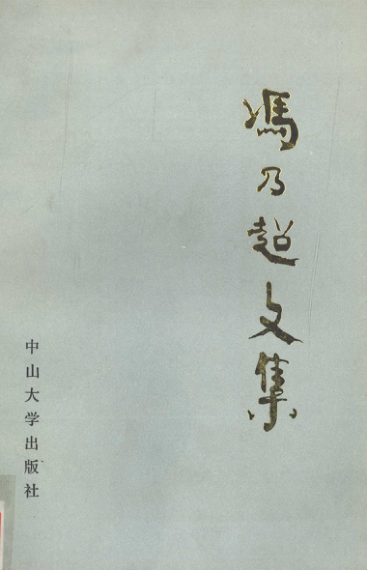 馮乃超文集
中山大学出版社